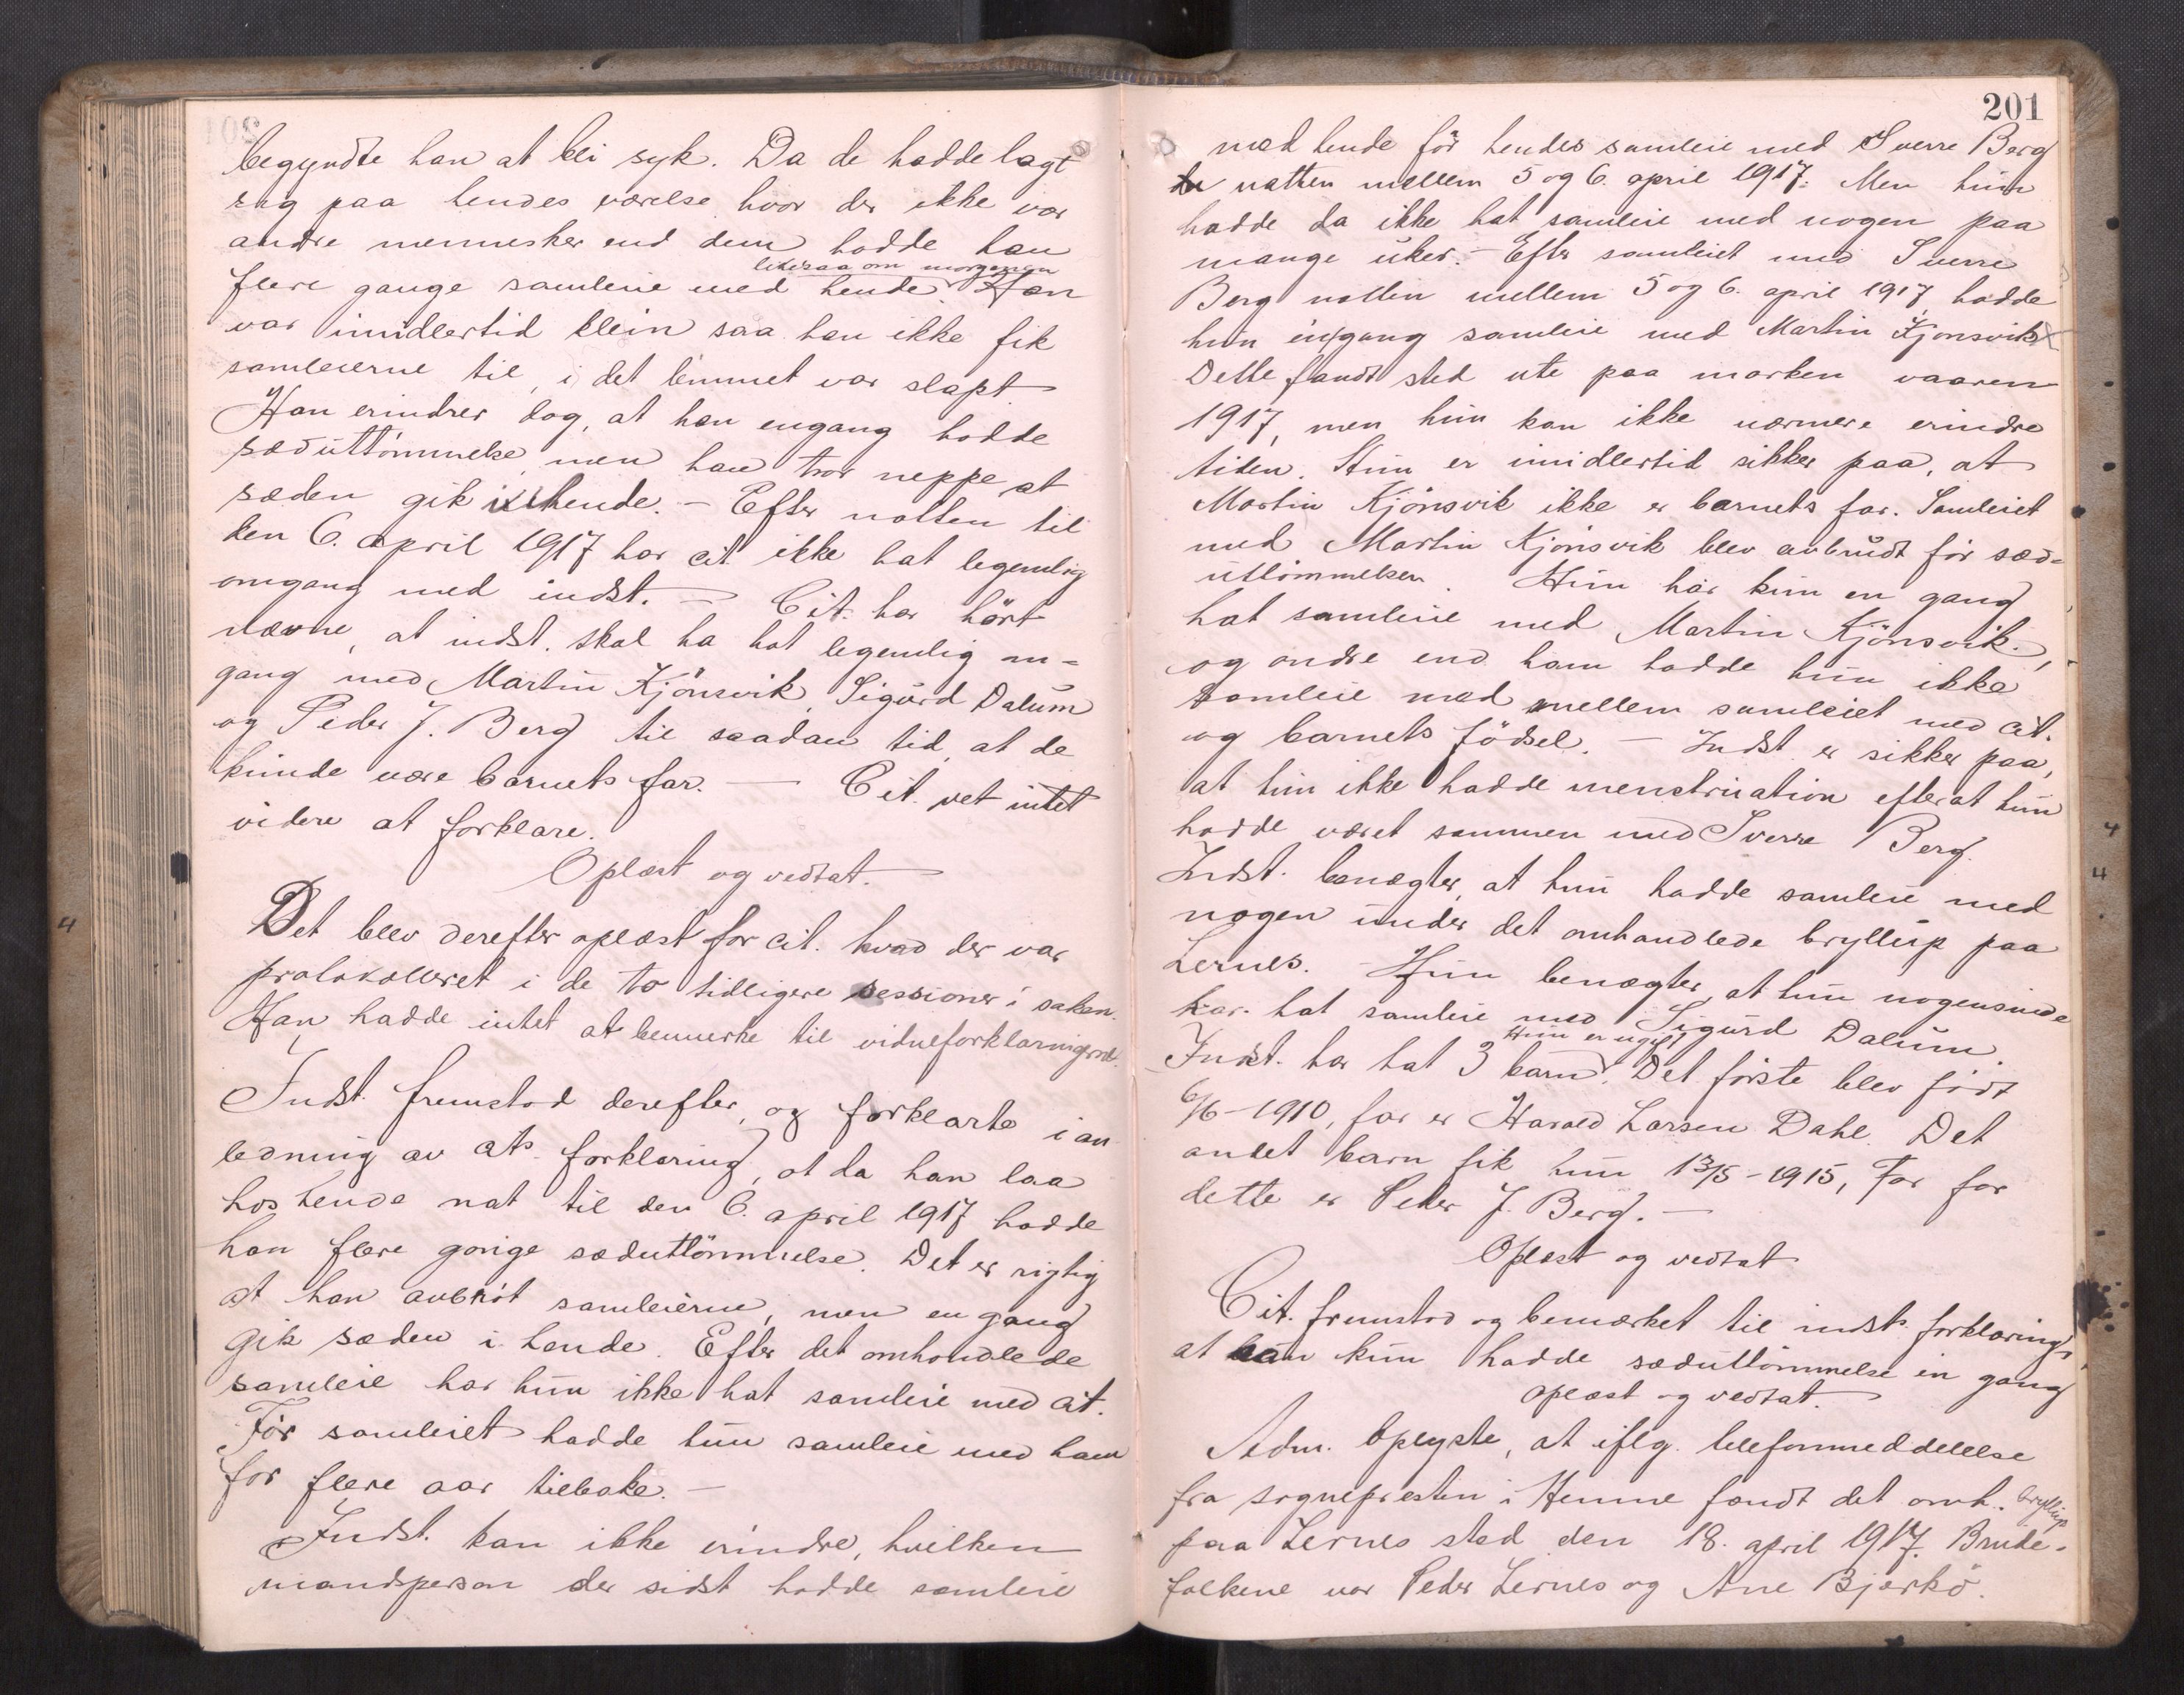 begyndte han at bli syk. Da de hadde lagt
sig paa hendes værelse hvor der ikke var
andre mennesker end dem hadde han
likesaa om morgenen
flere gange samleie med hende. Han
var imidlertid klein saa han ikke fik
samleierne til, i det lemmet var slapt.
Han erindrer dog, at han engang hadde
sæduttömmelse, men han tror neppe at
sæden gik i hende. - Efter natten til
den 6. april 1917 har cit ikke hat legemlig
omgang med indst. - Cit. har hört
nævne, at indst. skal ha hat legemlig om=
gang med Martin Kjönsvik, Sigurd Dalum
og Peder J. Berg til saadan tid, at de
kunde være barnets far. - Cit. vet intet
videre at forklare.
Oplæst og vedtat.
Det blev derefter oplæst for cit. hvad der var
protokolleret i de to tidligere sessioner i saken.
Han hadde intet at bemerke til vidneforklaringerne.
Indst. fremstod derefter, og forklarte i an
ledning av cits. forklaring, at da han laa
hos hende nat til den 6. april 1917 hadde
han flere gange sæduttömmelse. Det er rigtig
at han avbröt samleierne, men en gang
gik sæden i hende. Efter det omhandlede
samleie har hun ikke hat samleie med cit.
Før samleiet hadde hun samleie med ham
for flere aar tilbake. -
Indst. kan ikke erindre, hvilken
mandsperson der sidst hadde samleie
201
med hende för hendes samleie med Sverre Berg
natten mellem 5 og 6. april 1917. Men hun
hadde da ikke hat samleie med nogen paa
mange uker. - Efter samleiet med Sverre
Berg natten mellem 5 og 6. april 1917 hadde
hun engang samleie med Martin Kjønsvik
Dette fandt sted ute paa marken vaaren
1917, men hun kan ikke nærmere erindre
tiden. Hun er imidlertid sikker paa, at
Martin Kjönsvik ikke er barnets far. Samleiet
med Martin Kjönsvik blev avbrudt för sæd=
uttömmelsen. Hun har kun en gang
hat samleie med Martin Kjönsvik,
og andre end ham hadde hun ikke
samleie med mellem samleiet med cit.
og barnets födsel. - Indst. er sikker paa,
at hun ikke hadde menstruation efterat hun
hadde været sammen med Sverre Berg.
Indst. benægter, at hun hadde samleie med
nogen under det omhandlede bryllup paa
Lernes. - Hun benægter, at hun nogensinde
har hat samleie med Sigurd Dalum.
Hun er ugift
Indst. har hat 3 barn. Det förste blev födt
6/6-1910, far er Harald Larsen Dahl. Det
andet barn fik hun 13/5-1915, Far for
dette er Peder J. Berg. -
Oplæst og vedtat
Cit. fremstod og bemærket til indsts. forklaring,
at han kun hadde sæduttömmelse en gang
oplæst og vedtat.
Adm. oplyste, at iflg. telefonmeddelelse
fra sognepresten i Hemne fandt det omh. bryllup
paa Lernes sted den 18. april 1917. Brude-
folkene var Peder Lernes og Ane Bjerkö.